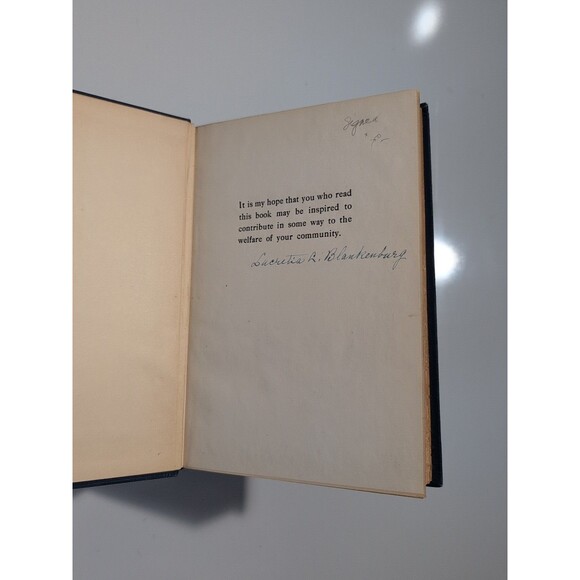 Signed
It is my hope that you who read
this book may be inspired to
contribute in some way to the
welfare of your community.
Lucretia L. Blankenburg